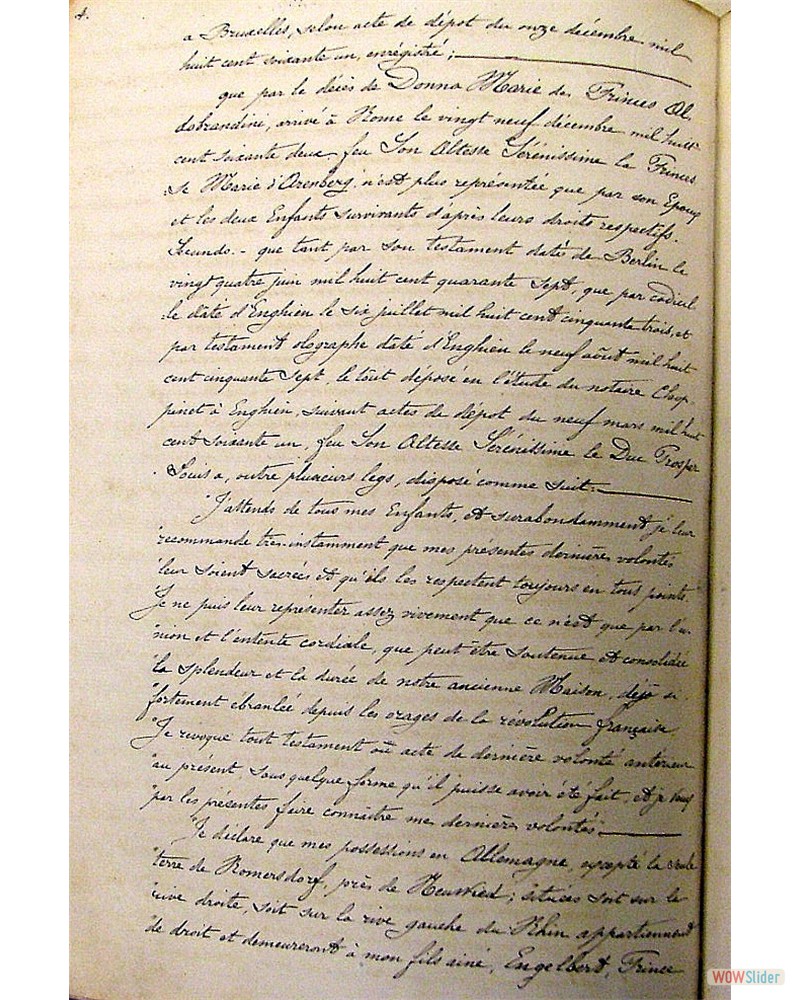 4.
a Bruxelles, selon acte de dépot du onze décembre mil
huit cent soixante un, enrégistré;
que par le décès de Donna Marie des Princes Al,
dobrandini, arrivé à Rome le vingt neuf décembre mil huit
cent soixante deux, feu Son Altesse Sérénissime la Princes
se Marie d'Arenberg, n'est plus représentée que par son Epoux
et les deux Enfants survivants d'après leurs droits respectifs.
Secundo.- que tant par son testament daté de Berlin le
vingt quatre juin mil huit cent quarante sept, que par codicil
le daté d'Enghien le six juillet mil huit cent cinquante trois, et
par testament olographe daté d'Enghien le neuf août mil huit
cent cinquante sept, le tout déposé en l'étude du notaire Chop
pinet à Enghien, suivant actes de dépot du neuf mars mil huit
cent soixante un, feu Son Altesse Sérénissime le Duc Prosper
Louis a, outre plusieurs legs, disposé comme suit.
"J'attends de tous mes Enfants, et surabondamment je leur
"recommande très-instamment que mes présentes dernières volontés
"leur soient sacrées et qu'ils les respectent toujours en tous points.
"Je ne puis leur représenter assez vivement que ce n'est que par l'u-
"nion et l'entente cordiale, que peut être soutenue et consolidée
"la splendeur et la durée de notre ancienne Maison, déjà si
"fortement ebranlée depuis les orages de la révolution française.
"Je révoque tout testament où acte de dernière volonté antérieur
"au présent sous quelque forme qu'il puisse avoir été fait, et je veux
"par les présentes faire connaître mes dernières volontés.
"Je déclare que mes possessions en Allemagne, excepté la seule
"terre de Romersdorf, près de Neuwied; situées soit sur la
"rive droite, soit sur la rive gauche du Rhin appartiennent
"de droit et demeureront à mon fils ainé, Engelbert, Prince
WOWSlider